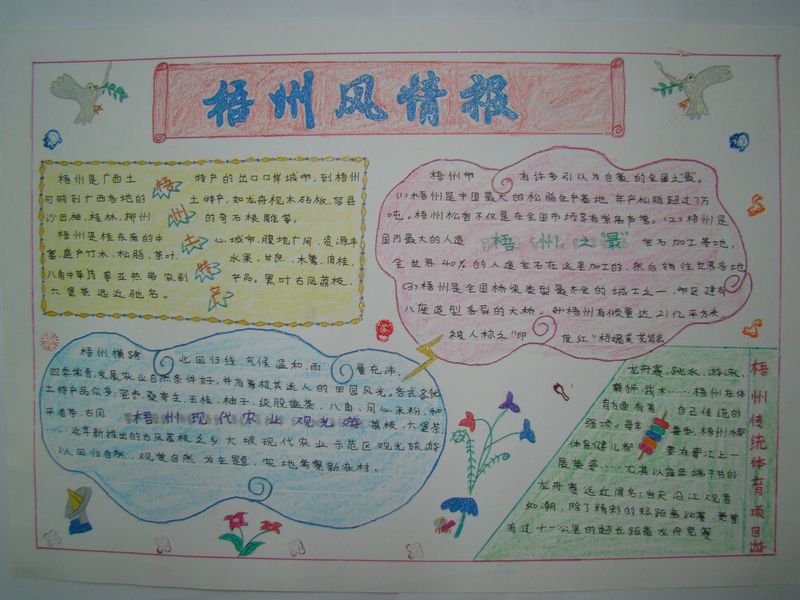 梧州风情报
梧州是广西土特产的出口口岸城市,到梧州
可购到广西各地的土特产,如龙州枧木砧板、容县
沙田柚、桂林、柳州的奇石根雕等。
梧州是桂东南的中心城市,腹地广阔,资源丰
富,盛产竹木、松脂、茶叶、水果、甘蔗、木薯、肉桂、
八角中草药等亚热带农副产品。黑叶古凤荔枝、
六堡茶远近驰名。
梧州土特产
梧州市有许多引以为自豪的全国之"最"。
(1)梧州是中国最大的松脂生产基地,年产松脂超过7万
吨。梧州松香不仅是在全国市场享有崇高声誉。(2)梧州是
国内最大的人造宝石加工基地,
全世界40%的人造宝石在这里加工的,然后销往世界各地
(3)梧州是全国桥梁类型最齐全的城市之一,市区建有
八座造型各异的大桥。(4)梧州有倾量达21亿平方米
被人称之"印度红"相媲美
梧州之"最"
梧州横跨北回归线,气候温和,雨量充沛,
四季常青,发展农业自然条件好,并有着极其迷人的田园风光。各式各化
土特产品众多:密枣、桑寄生、五桂、柚子、纸股盘茶、八角、同心米粉、和
平香芋、古凤荔枝、六堡茶
……近年新推出的古凤荔枝之乡大坡现代农业示范区观光旅游
以回归自然、观赏自然为主题,实地考察新农村。
梧州现代农业观光游
龙舟赛、跳水、游泳、
舞狮、武术……梧州在体
育方面有着自己传统的
强项。每年夏季,梧州水都
体育健儿都要在西江上一
展英姿……尤其以每年端午节的
龙舟赛远近闻名:当天沿江观者
如潮,除了精彩的短距离比赛,更曾
有过十一公里的超长距离龙舟竞赛
梧州传统体育项目游